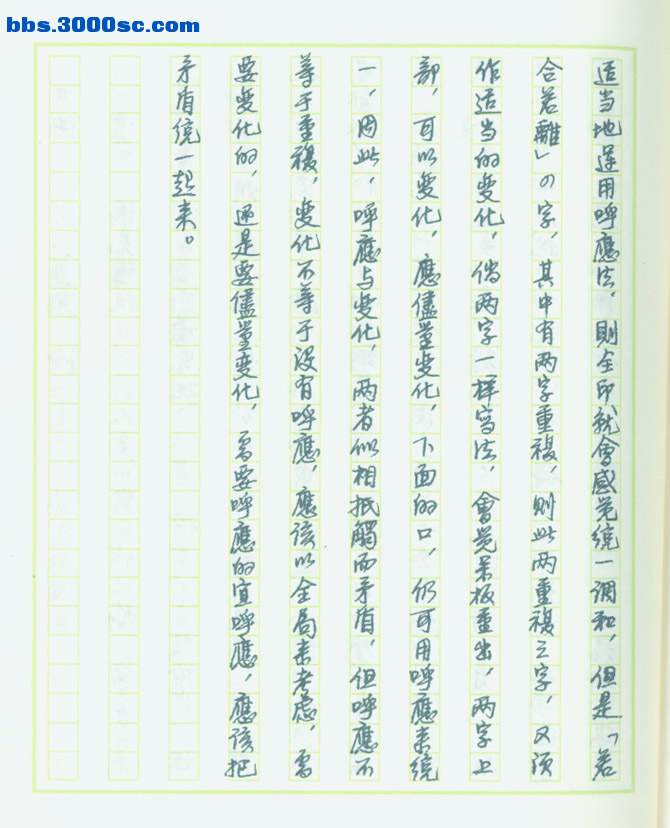 bbs.3000sc.com
适当地運用呼應法，則全印就會感覚统一调和，但是「若
合若離」の字，其中有两字重複，则此两重複之字，又须
作适当的变化，倘两字一样写法，會觉呆板重出，两字上
部，可以变化，應儘量变化，下面的口，仍可用呼應来统
一，因此，呼應与变化，两者似相抵觸而矛盾，但呼應不
等于重複，变化不等于没有呼應，應该以全局来考虑，需
要变化的，还是要儘量变化，需要呼應的宜呼應，應该把
矛盾统一起来。